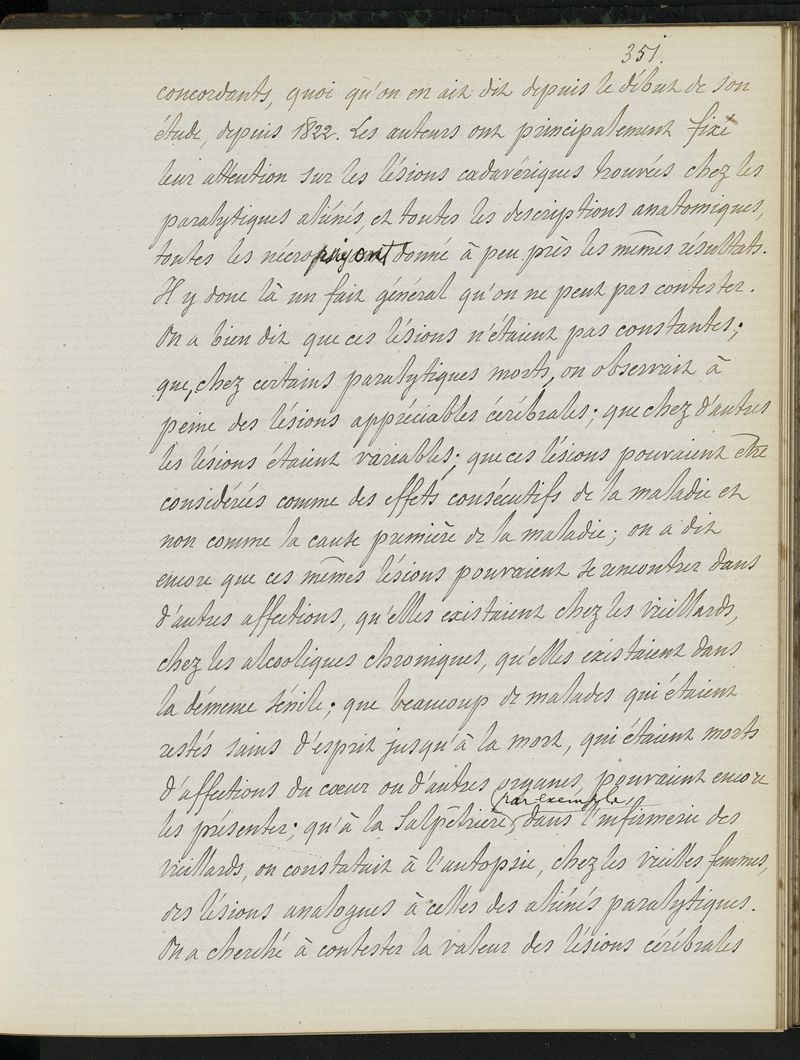 351.
concordants, quoi qu'on en ait dit depuis le début de son
étude, depuis 1822. Les auteurs ont principalement fixé
leur attention sur les lésions cadavériques trouvées chez les
paralytiques aliénés, et toutes les descriptions anatomiques,
toutes les ont donné à peu près les mêmes résultats.
Il y donc là un fait général qu'on ne peut pas contester.
On a bien dit que ces lésions n'étaient pas constantes;
que, chez certains paralytiques morts, on observait à
peine des lésions appréciables cérébrales; que chez d'autres
les lésions étaient variables; que ces lésions pouvaient être
considérées comme des effets consécutifs de la maladie et
non comme la cause première de la maladie; on a dit
encore que ces mêmes lésions pouvaient se rencontrer dans
d'autres affections, qu'elles existaient chez les vieillards,
chez les alcooliques chroniques, qu'elles existaient dans
la démence sénile; que beaucoup de malades qui étaient
restés sains d'esprit jusqu'à la mort, qui étaient morts
d'affections du cœur ou d'autres organes, pouvaient encore
les présenter; qu'à la Salpêtrière, par exemple, dans l'infirmerie des
vieillards, on constatait à l'autopsie, chez les vieilles femmes,
des lésions analogues à celles des aliénés paralytiques.
On a cherché à contester la valeur des lésions cérébrales